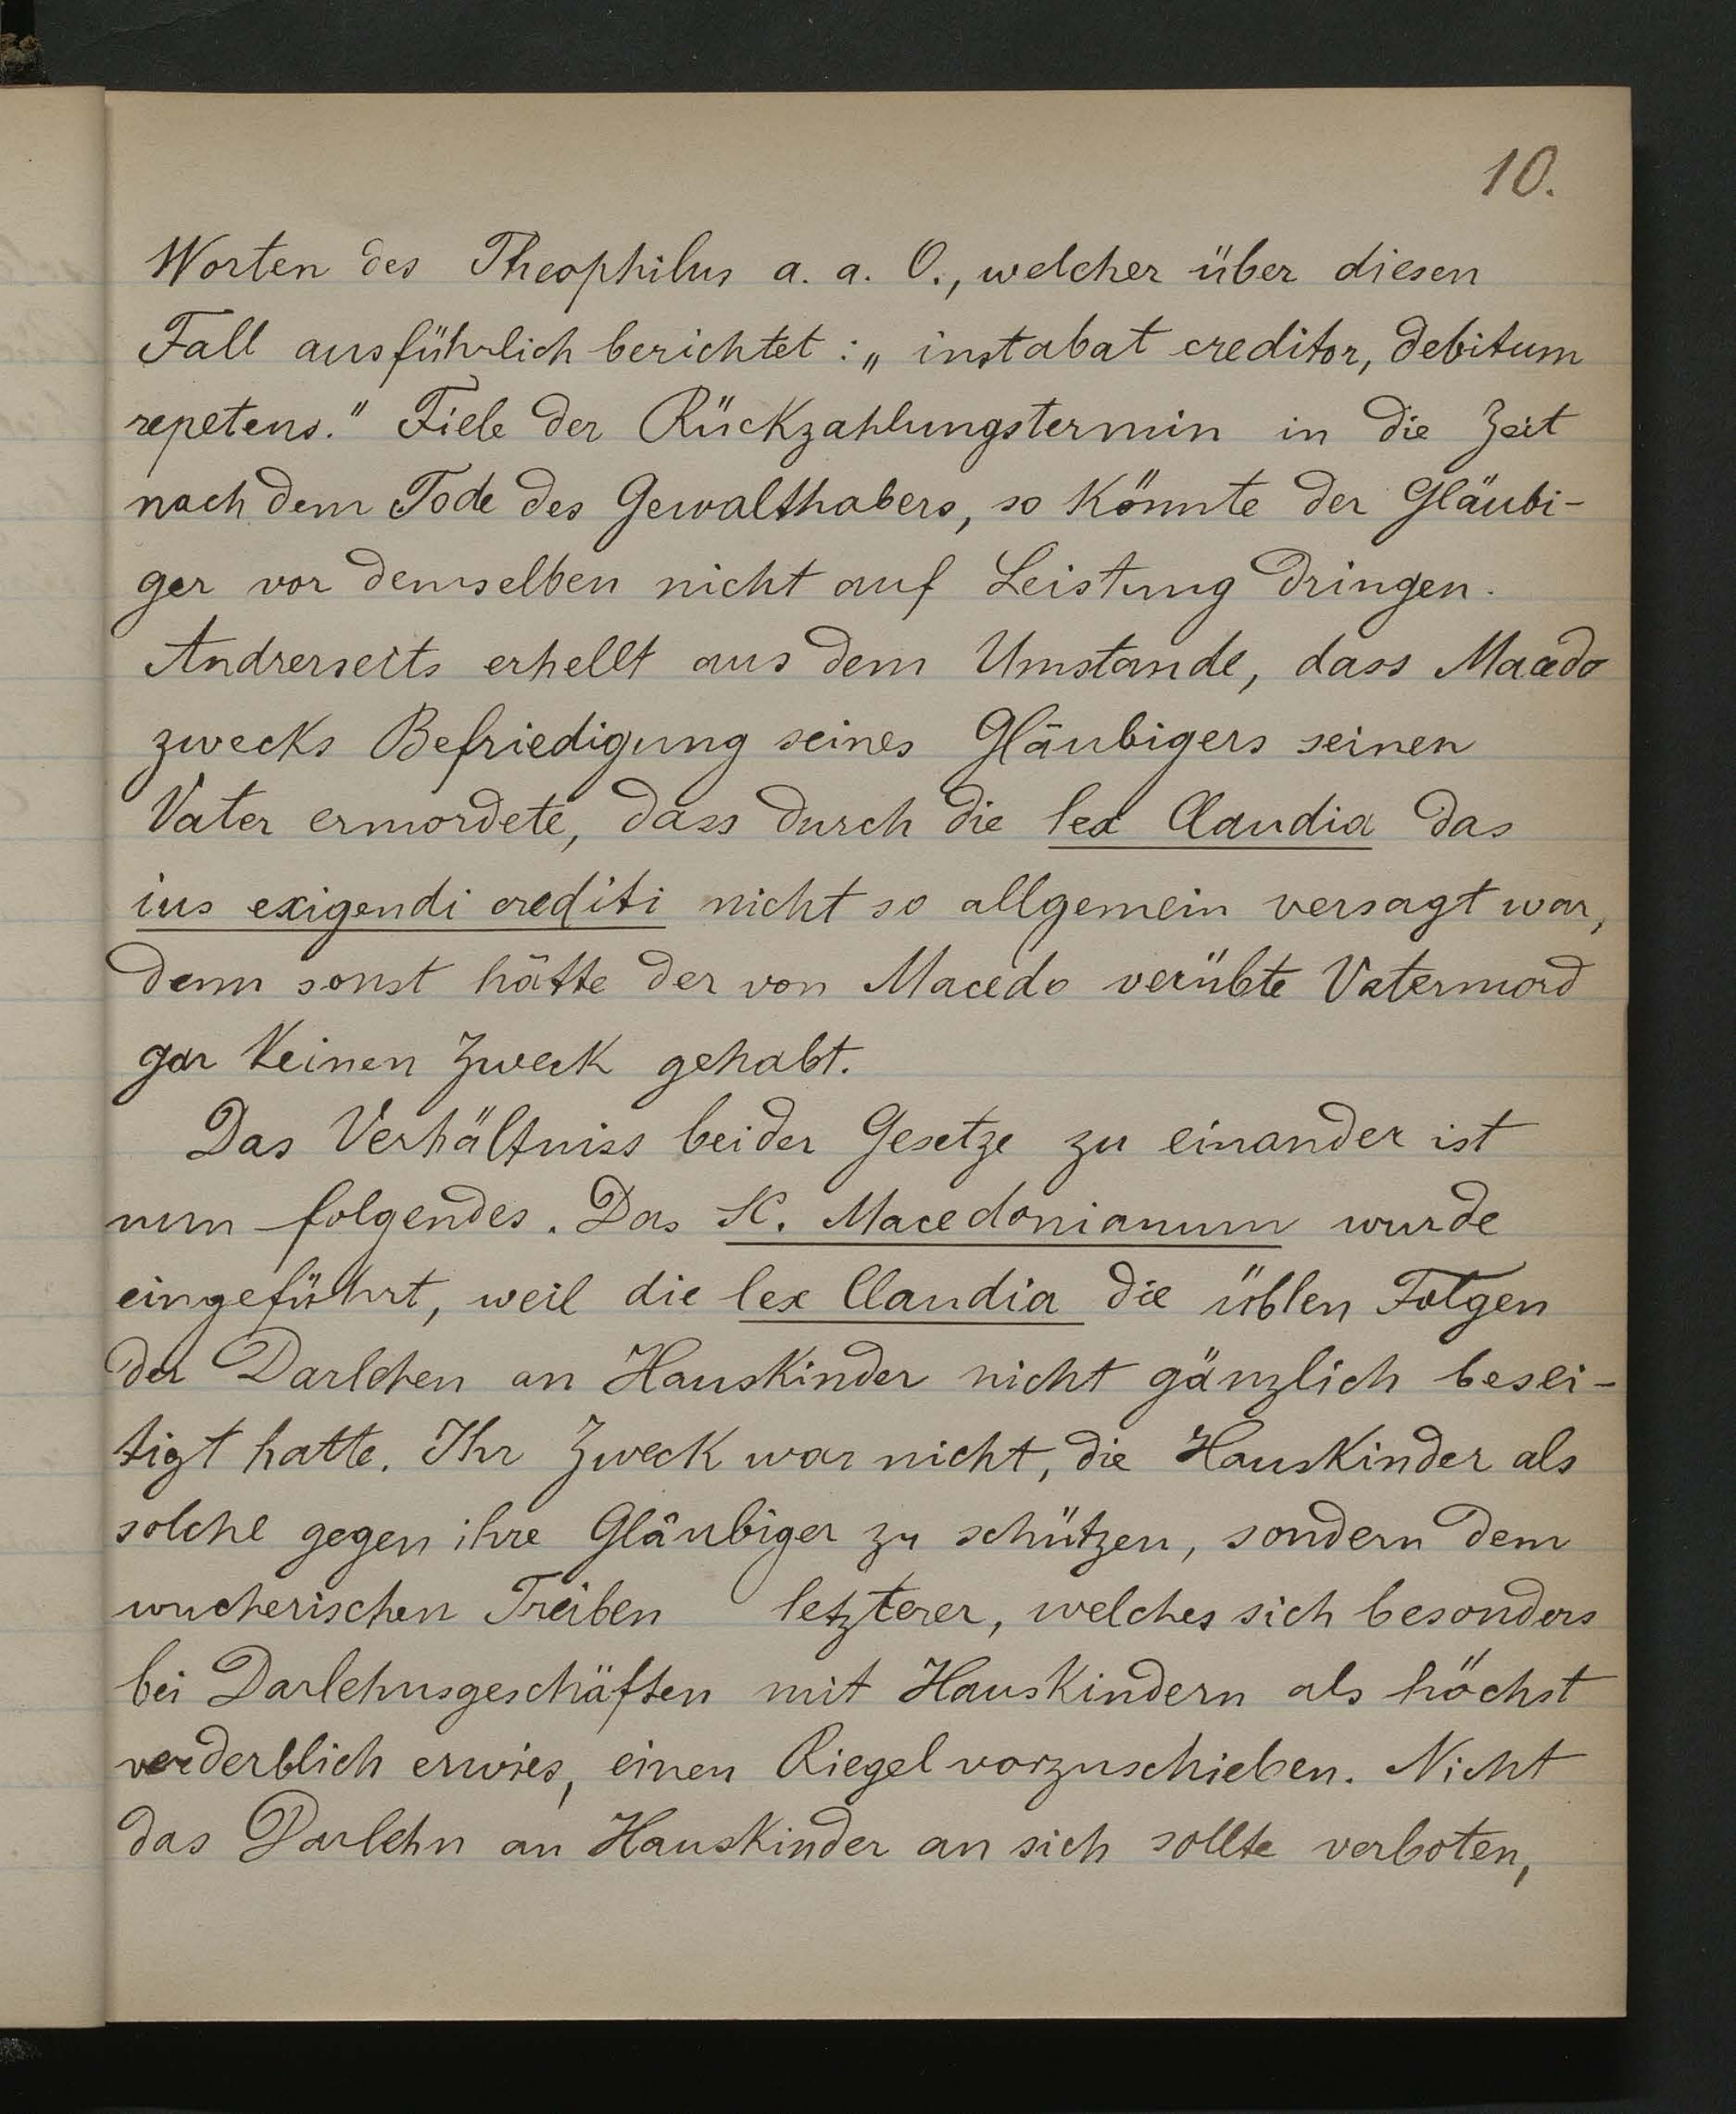 10.
Worten des Theophilus a. a. O., welcher über diesen
Fall ausführlich berichtet: „instabat creditor, debitum
repetens." Fiele der Rückzahlungstermin in die Zeit
nach dem Tode des Gewalthabers, so könnte der Gläubi-
ger vor demselben nicht auf Leistung dringen.
Andrerseits erhellt aus dem Umstande, dass Macedo
zwecks Befriedigung seines Gläubigers seinen
Vater ermordete, dass durch die lex Claudia das
ius exigendi crediti nicht so allgemein versagt war,
denn sonst hätte der von Macedo verübte Vatermord
gar keinen Zweck gehabt.
Das Verhältniss beider Gesetze zu einander ist
nun folgendes. Das SC. Macedonianum wurde
eingeführt, weil die lex Claudia die üblen Folgen
der Darlehen an Hauskinder nicht gänzlich besei-
tigt hatte. Ihr Zweck war nicht, die Hauskinder als
solche gegen ihre Gläubiger zu schützen, sondern dem
wucherischen Treiben letzterer, welches sich besonders
bei Darlehnsgeschäften mit Hauskindern als höchst
verderblich erwies, einen Riegel vorzuschieben. Nicht
das Darlehn an Hauskinder an sich sollte verboten,